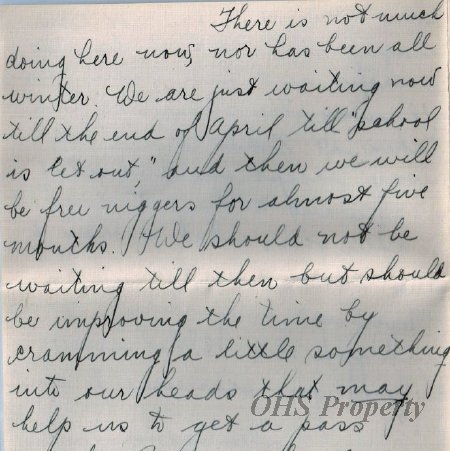 There is not much
doing here now, nor has been all
winter. We are just waiting now
till the end of April till "school
is let out," and then we will
be free niggers for almost five
months. We should not be
waiting till then but should
be improving the time by
cramming a little something
into our heads that may
help us to get a pass
OHS Property